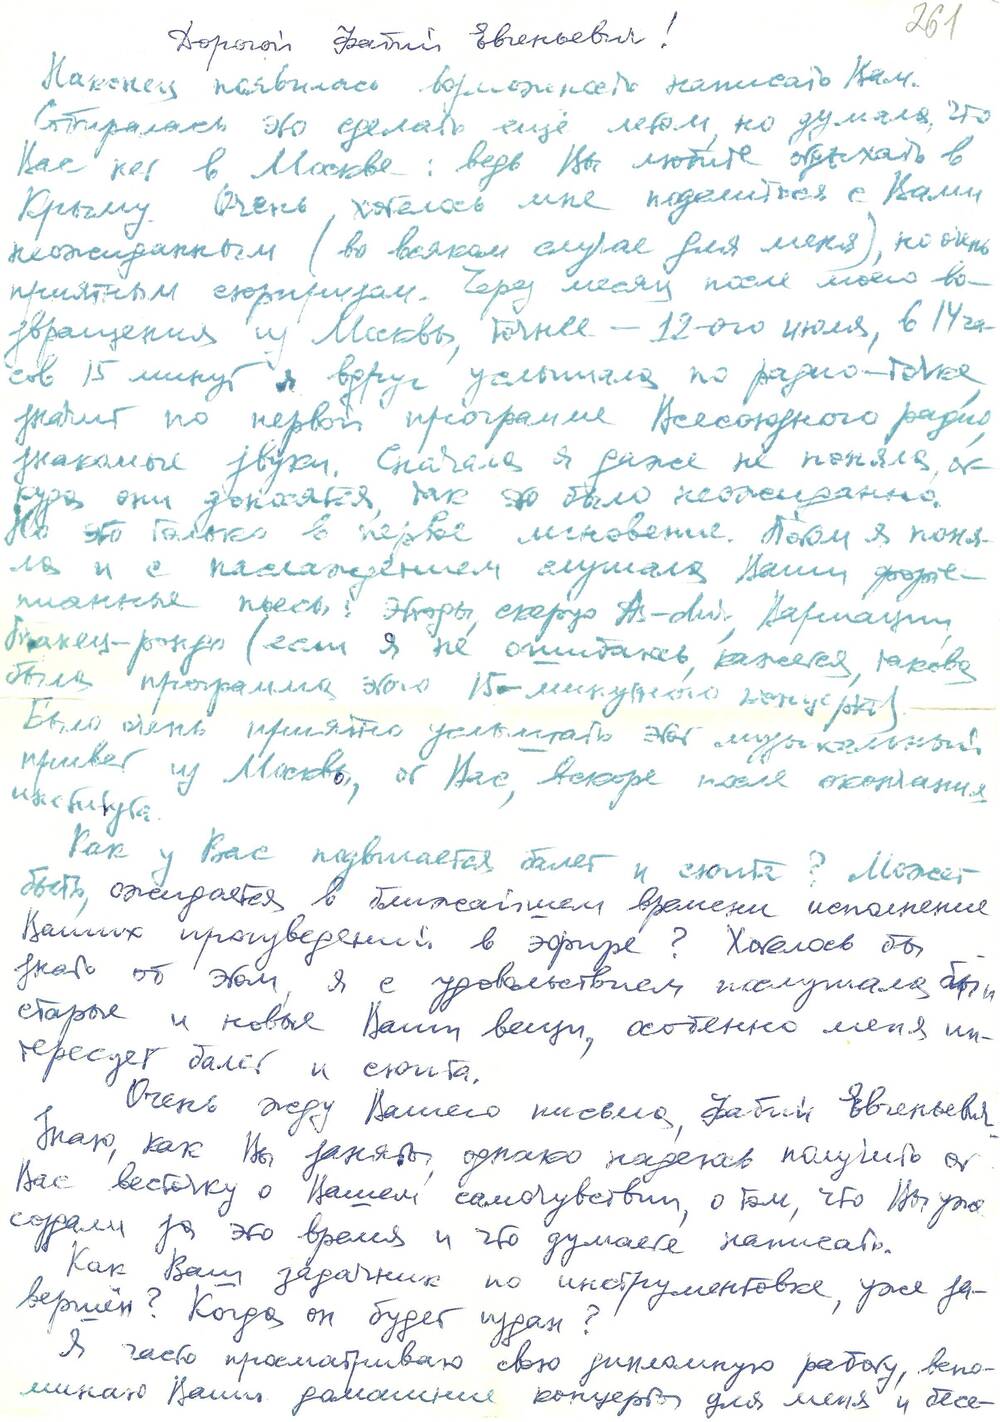 261
Дорогой Фабий Евгеньевич!
Наконец появилась возможность написать Вам.
Собиралась это сделать ещё летом, но думала, что
Вас нет в Москве: ведь Вы любите отдыхать в
Крыму. Очень хотелось мне поделиться с Вами
неожиданным (во всяком случае для меня), но очень
приятным сюрпризом. Через месяц после моего во-
звращения из Москвы, точнее — 12-ого июля, в 14 ча-
сов 15 минут я вдруг услышала по радио-точке,
значит по первой программе Всесоюзного радио,
знакомые звуки. Сначала я даже не поняла, от-
куда они доносятся, так это было неожиданно.
Но это только в первое мгновение. Потом я поня-
ла и с наслаждением слушала Ваши форте-
пианные пьесы: этюды, скерцо As-dur, Вариации,
танец-рондо (если я не ошибаюсь, кажется, такова
была программа этого 15-минутного концерта).
Было очень приятно услышать этот музыкальный
привет из Москвы, от Вас, вскоре после окончания
института.
Как у Вас подвигается балет и сюита? Может
быть, ожидается в ближайшем времени исполнение
Ваших произведений в эфире? Хотелось бы
знать об этом, я с удовольствием послушала бы и
старые и новые Ваши вещи, особенно меня ин-
тересует балет и сюита.
Очень жду Вашего письма, Фабий Евгеньевич.
Знаю, как Вы заняты, однако надеюсь получить от
Вас весточку о Вашем самочувствии, о том, что Вы уже
создали за это время и что думаете написать.
Как Ваш задачник по инструментовке, уже за-
вершён? Когда он будет издан?
Я часто просматриваю свою дипломную работу, вспо-
минаю Ваши домашние концерты для меня и бесе-